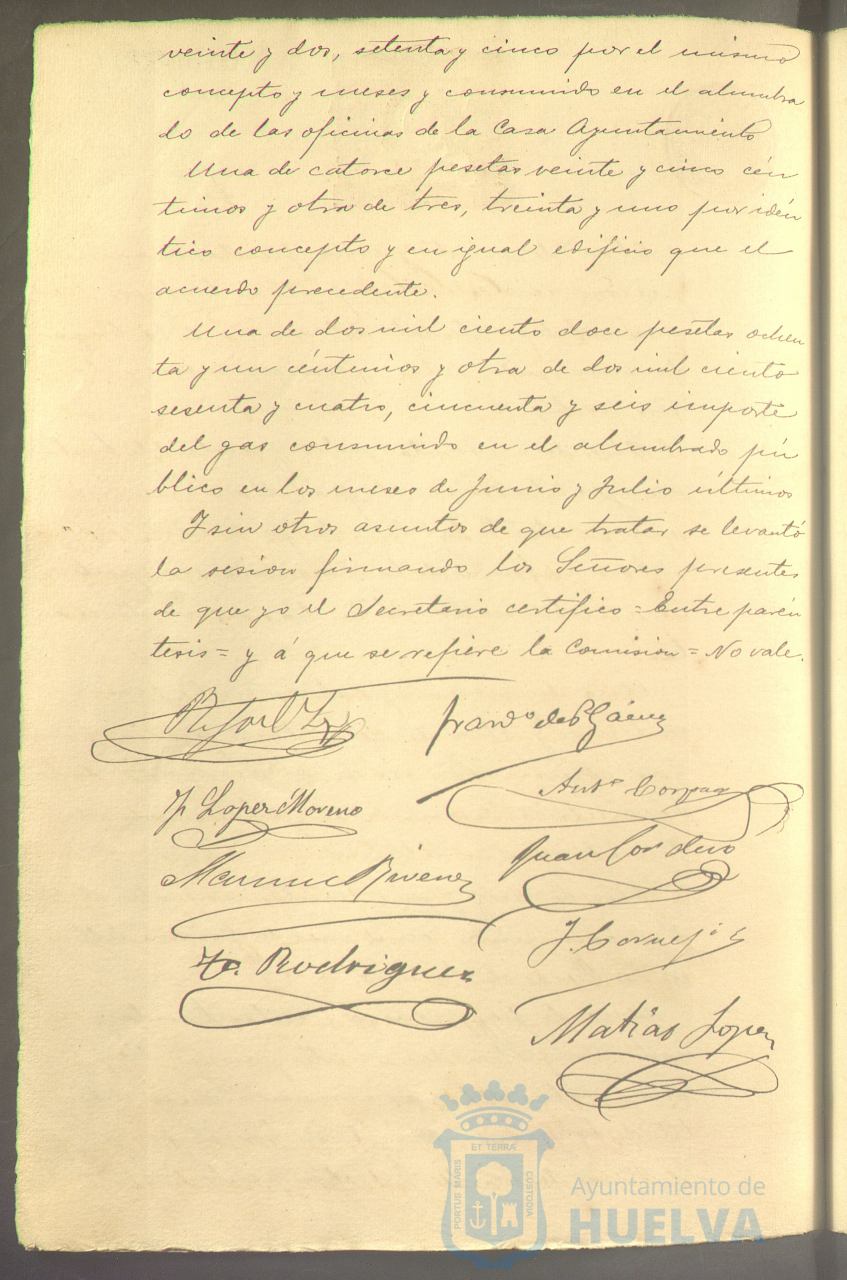 veinte y dos, setenta y cinco por el mismo
concepto y meses y consumido en el alumbra
do de las oficinas de la Casa Ayuntamiento
Una de catorce pesetas veinte y cinco cén
timos y otra de tres, treinta y uno por idén
tico concepto y en igual edificio que el
acuerdo precedente.
Una de dos mil ciento doce pesetas ochen
ta y un céntimos y otra de dos mil ciento
sesenta y cuatro, cincuenta y seis importe
del gas consumido en el alumbrado pú
blico en los meses de Junio y Julio últimos
Y sin otros asuntos de que tratar se levantó
la sesion firmando los Señores presentes
de que yo el Secretario certifico = Entre parén
tesis = y á que se refiere la Comision = No vale.
Franco de P. Gáenz
J Lopez Moreno
Anto Corpas
Manuel Rivera
Juan Cordero
J. Cornejo
Rodriguez
Matias Lopez
ET TERRÆ
PORTUS MARIS
CUSTODIA
Ayuntamiento de
HUELVA